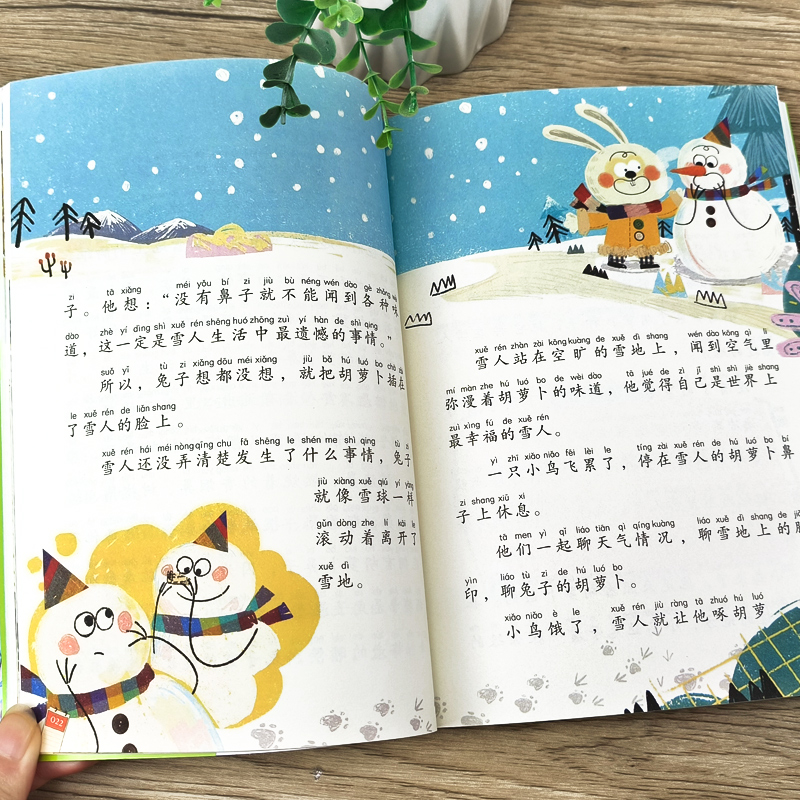 zi tā xiǎng méi yǒu bí zi jiù bù néng wén dào gè zhǒng wèi
子。他想：“没有鼻子就不能闻到各种味
dào zhè yí dìng shì xuě rén shēng huó zhōng zuì yí hàn de shì qing
道，这一定是雪人生活中最遗憾的事情。”
suǒ yǐ tù zi xiǎng dōu méi xiǎng jiù bǎ hú luó bo chā zài
所以，兔子想都没想，就把胡萝卜插在
le xuě rén de liǎn shang
了雪人的脸上。
xuě rén hái méi nòng qīng chu fā shēng le shén me shì qing tù zi
雪人还没弄清楚发生了什么事情，兔子
jiù xiàng xuě qiú yí yàng
就像雪球一样
gǔn dòng zhe lí kāi le
滚动着离开了
xuě dì
雪地。
022
xuě rén zhàn zài kōng kuàng de xuě dì shang wén dào kōng qì lǐ
雪人站在空旷的雪地上，闻到空气里
mí màn zhe hú luó bo de wèi dào tā jué de zì jǐ shì shì jiè shang
弥漫着胡萝卜的味道，他觉得自己是世界上
zuì xìng fú de xuě rén
最幸福的雪人。
yì zhī xiǎo niǎo fēi lèi le tíng zài xuě rén de hú luó bo bí
一只小鸟飞累了，停在雪人的胡萝卜鼻
zi shang xiū xi
子上休息。
tā men yì qǐ liáo tiān qì qíng kuàng liáo xuě dì shang de jiǎo
他们一起聊天气情况，聊雪地上的脚
yìn liáo tù zi de hú luó bo
印，聊兔子的胡萝卜。
xiǎo niǎo è le xuě rén jiù ràng tā zhuó hú luó
小鸟饿了，雪人就让他啄胡萝